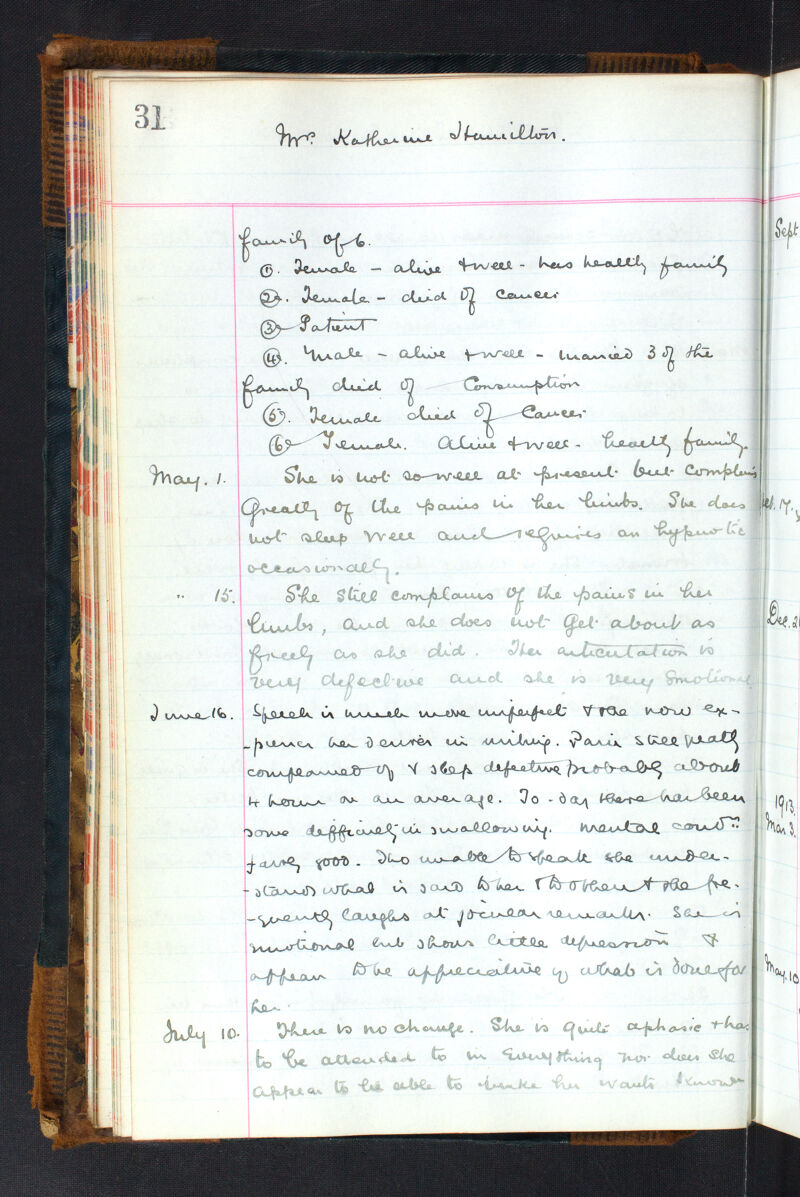 31
Mrs. Katherine Hamilton.
family of 6.
①. Female - alive & well - has healthy family
②. Female - died of cancer
③ Patient
④. Male - alive & well - married 3 of the
family died of Consumption
⑤. Female died of Cancer
⑥ Female. Alive & well - healthy family.
May. 1. She is not so well at present but complains
greatly of the pains in her limbs. She does
not sleep well and requires an hypnotic
occasionally.
" 15. She still complains of the pains in her
limbs, and she does not get about as
freely as she did. Her articulation is
very defective and she is very emotional
June 16. Speech is much more imperfect & she now ex-
-presses her desires in writing. Pain still greatly
complained of & sleep defective probably about
4 hours on an average. To-day there has been
some difficulty in swallowing. Mental condn.
fairly good. Tho unable to speak she under-
-stands what is said to her & to others & she fre-
-quently laughs at jocular remarks. She is
emotional but shows little depression &
appears to be appreciative of what is done for
her.
July 10. There is no change. She is quite aphasic & has
to be attended to in everything nor does she
appear to be able to make her wants known
Sept
Dec. 2
1913.
Mar 3.
May. 10